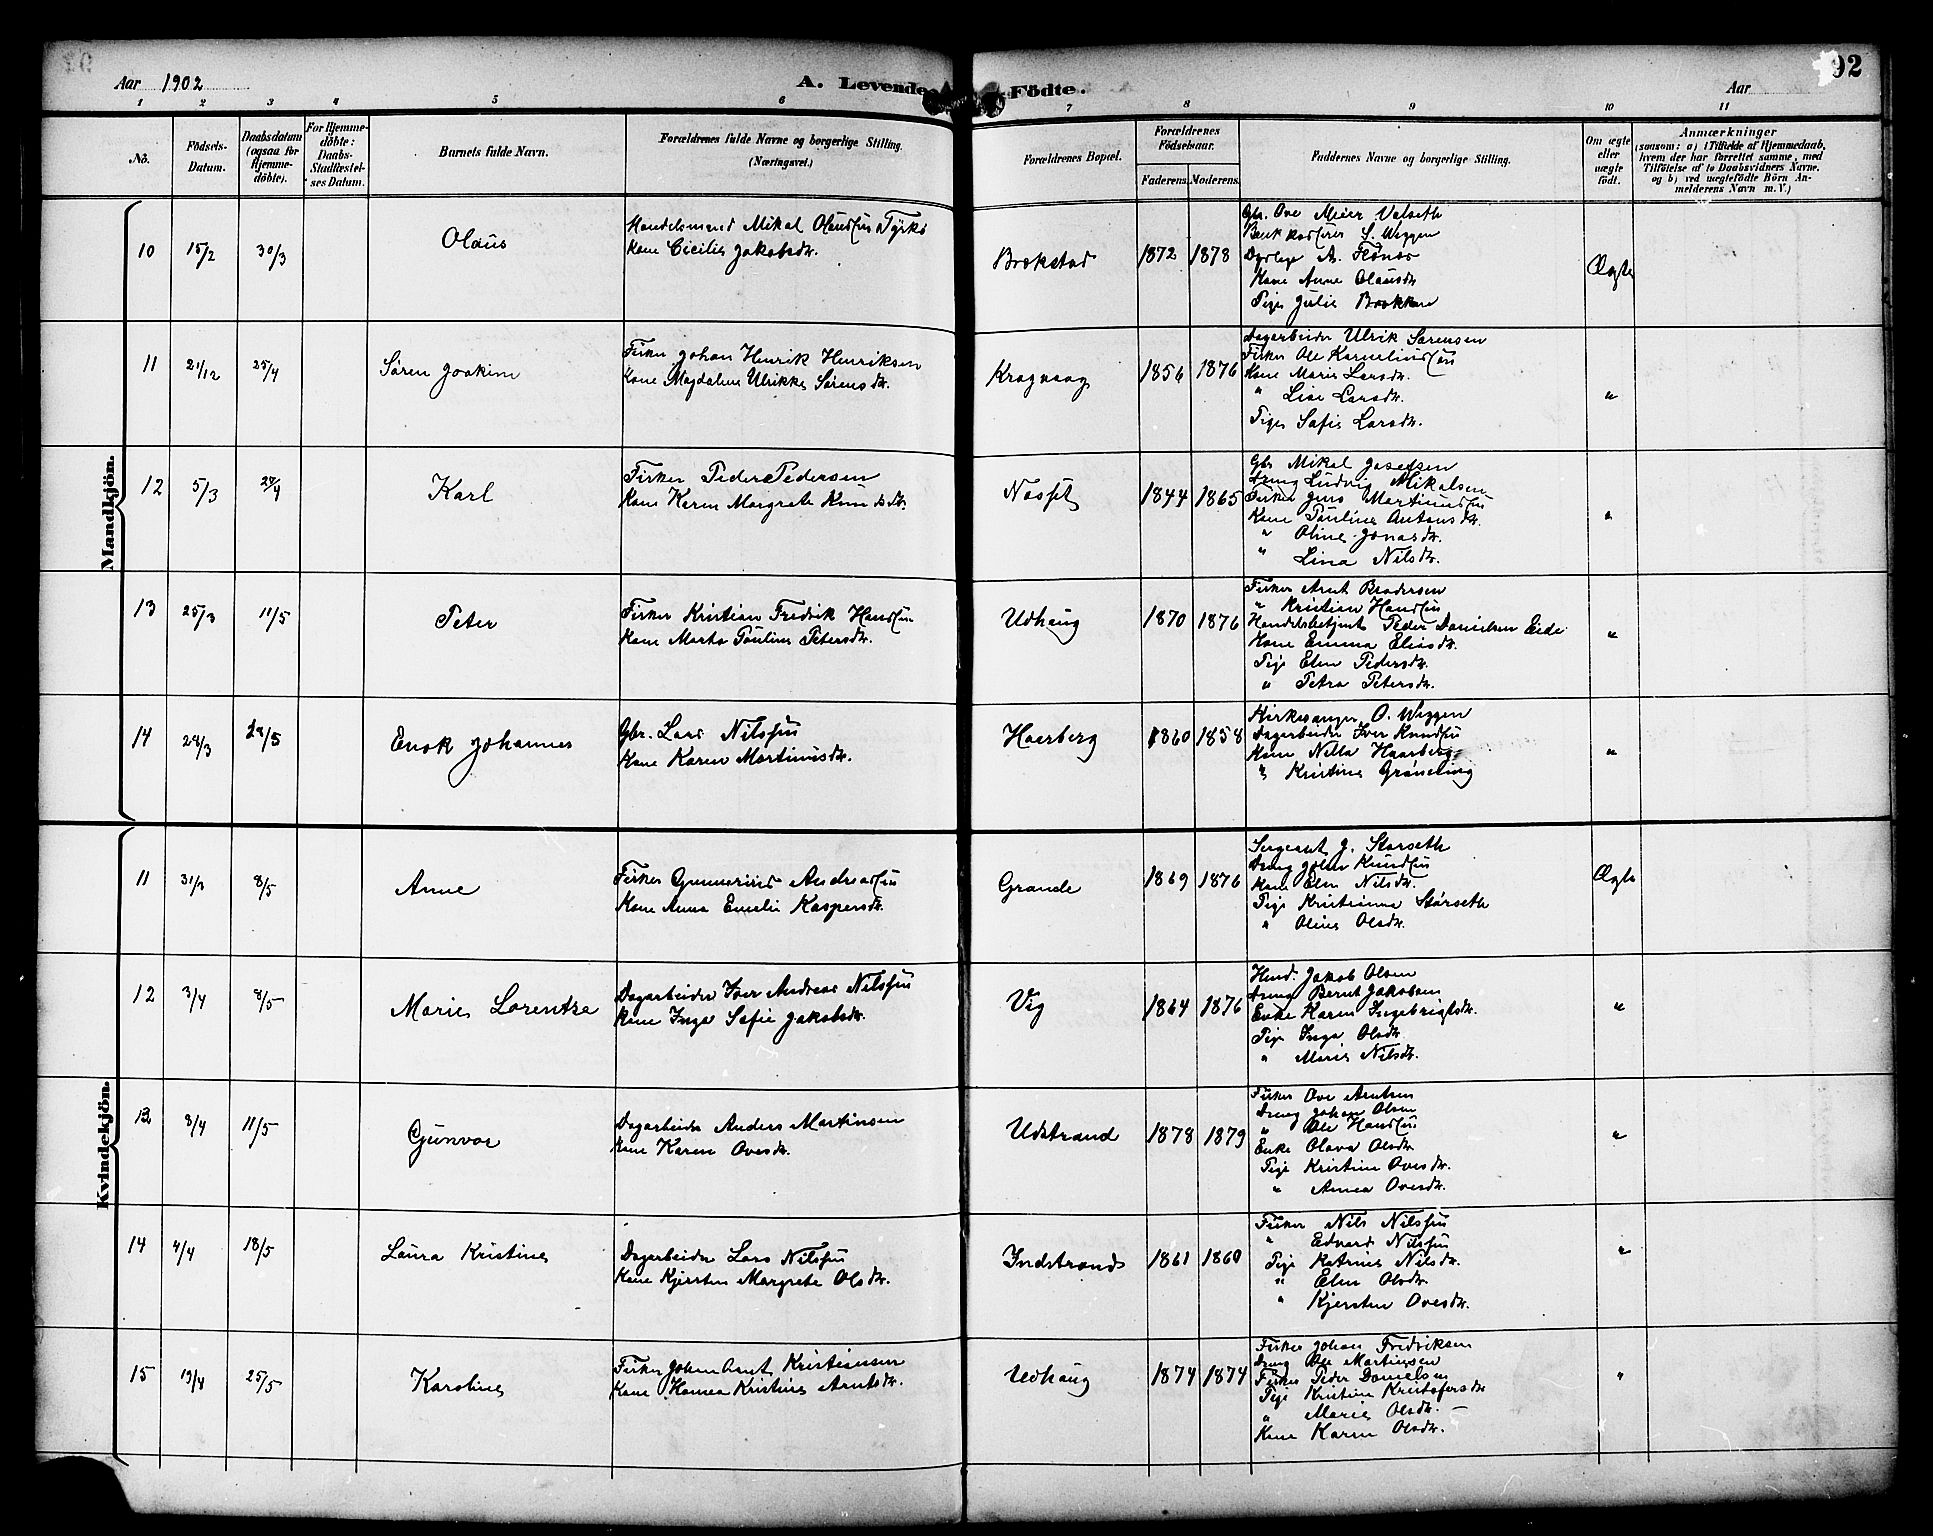 Aar 1902
A. Levende Födte.
Aar
92
1 2 3 4 5 6 7 8 9 10 11
No.
Födsels-Datum.
Daabsdatum (ogsaa for Hjemme-döbte).
For Hjemme-döbte: Daabs-Stadfæstel-ses Datum.
Barnets fulde Navn.
Forældrenes fulde Navne og borgerlige Stilling. (Næringsvei.)
Forældrenes Bopæl.
Forældrenes Födselsaar.
Faderens. Moderens.
Faddernes Navne og borgerlige Stilling.
Om ægte eller uægte födt.
Anmærkninger
(saasom: a) i Tilfælde af Hjemmedaab, hvem der har forrettet samme, med Tilföielse af to Daabsvidners Navne, og b) ved uægtefödte Börn An-melderens Navn m. V.)
Mandkjön.
10 15/2 30/3 Olaus
Handelsmand Mikal Olaussen Tyrhö
Kone Cecilie Jakobsdr.
Brækstad 1872 1878
Gbr. Ove Meier Valseth
Bankkasserer S. Wiggen
A. Flönæs
Kone Anne Olausdr
Pige Julie Brækken
Ægte
11 21/12 25/4 Søren Joakim
Fisker Johan Henrik Henriksen
Kone Magdalena Ulrikke Sørensdr.
Kragvaag 1856 1876
Dagarbeider Ulrik Sørensen
Fisker Ole Korneliussen
Kone Marie Larsdr.
" Lise Larsdr.
Pige Safie Larsdr.
"
12 5/3 Karl
Fisker Peder Pedersen
Kone Karen Margrete Knudsdr.
Næsset 1844 1865
Gbr Mikal Josefsen
Dreng Ludvig Mikalsen
Fisker Jens Martinussen
Kone Pauline Antonsdr.
" Oline Jonasdr.
" Lina Nilsdr.
"
13 25/3 11/5 Peter
Fisker Kristian Fredrik Hanssen
Kone Marta Pauline Petersdr.
Udhaug 1870 1876
Fisker Arnt Brodersen
" Kristian Hanssen
Handelsbetjent Peder Danielsen Eide
Kone Emma Eliasdr.
Pige Elen Pedersdr.
" Petra Petersdr.
"
14 28/3 Enok Johannes
Gbr. Lars Nilssen
Kone Karen Martinusdr.
Haarberg 1860 1858
Kirkesanger O. Wiggen
Dagarbeider Iver Knudsen
Kone Nella Haarberg
" Kristine Grøneling
"
Kvindekjön.
11 8/5 Anne
Fisker Gunnerius Andreassen
Kone Anna Emelie Kaspersdr.
Grande 1869 1876
Sergeant J. Størseth
Dreng Johan Knudsen
Kone Elen Nilsdr.
Pige Kristianna Størseth
" Oline Olsdr.
Ægte
12 3/4 8/5 Marie Lorentze
Dagarbeider Iver Andreas Nilssen
Kone Inga Safie Jakobsdr.
Vig 1864 1876
Husm. Jakob Olsen
Dreng Bernt Jakobsen
Enke Karen Ingebrigtsdr.
Pige Inga Olsdr.
" Marie Nilsdr.
"
13 8/4 11/5 Gunvor
Dagarbeider Anders Martinsen
Kone Karen Ovesdr.
Udstrand 1878 1879
Fisker Ove Arntsen
Dreng Johan Olsen
" Ole Hanssen
Enke Olava Olsdr.
Pige Kristine Ovesdr.
" Anna Ovesdr.
"
14 4/4 18/5 Laura Kristine
Dagarbeider Lars Nilssen
Kone Kjersten Margrete Olsdr.
Indstrand 1861 1860
Fisker Nils Nilssen
" Edvard Nilssen
Pige Katrine Nilsdr.
" Elen Olsdr.
" Kjersten Ovesdr.
"
15 19/4 25/5 Karoline
Fisker Johan Arnt Kristiansen
Kone Hanna Kristine Arntsdr.
Udhaug 1874 1874
Fisker Johan Fredriksen
Dreng Ole Martinsen
Fisker Peder Danielsen
Pige Kristine Kristofersdr
" Marie Olsdr.
Kone Karen Olsdr.
"